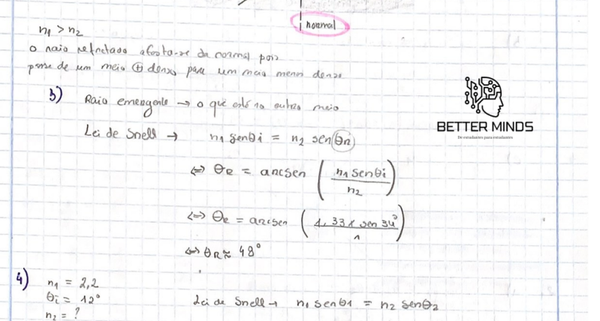 normal
n₁ > n₂
o raio refractado afasta-se da normal pois
passa de um meio ⊕ denso para um meio menos denso
b) Raio emergente → o que está no outro meio
Lei de Snell → n₁ senθi = n₂ sen θR
BETTER MINDS
⇔ θR = arcsen (n₁ senθi / n₂)
⇔ θR = arcsen (1,33 x sen 34° / 1)
⇔ θR ≈ 48°
4) n₁ = 2,2
θi = 12°
Lei de Snell → n₁ senθ₁ = n₂ senθ₂
n₂ = ?